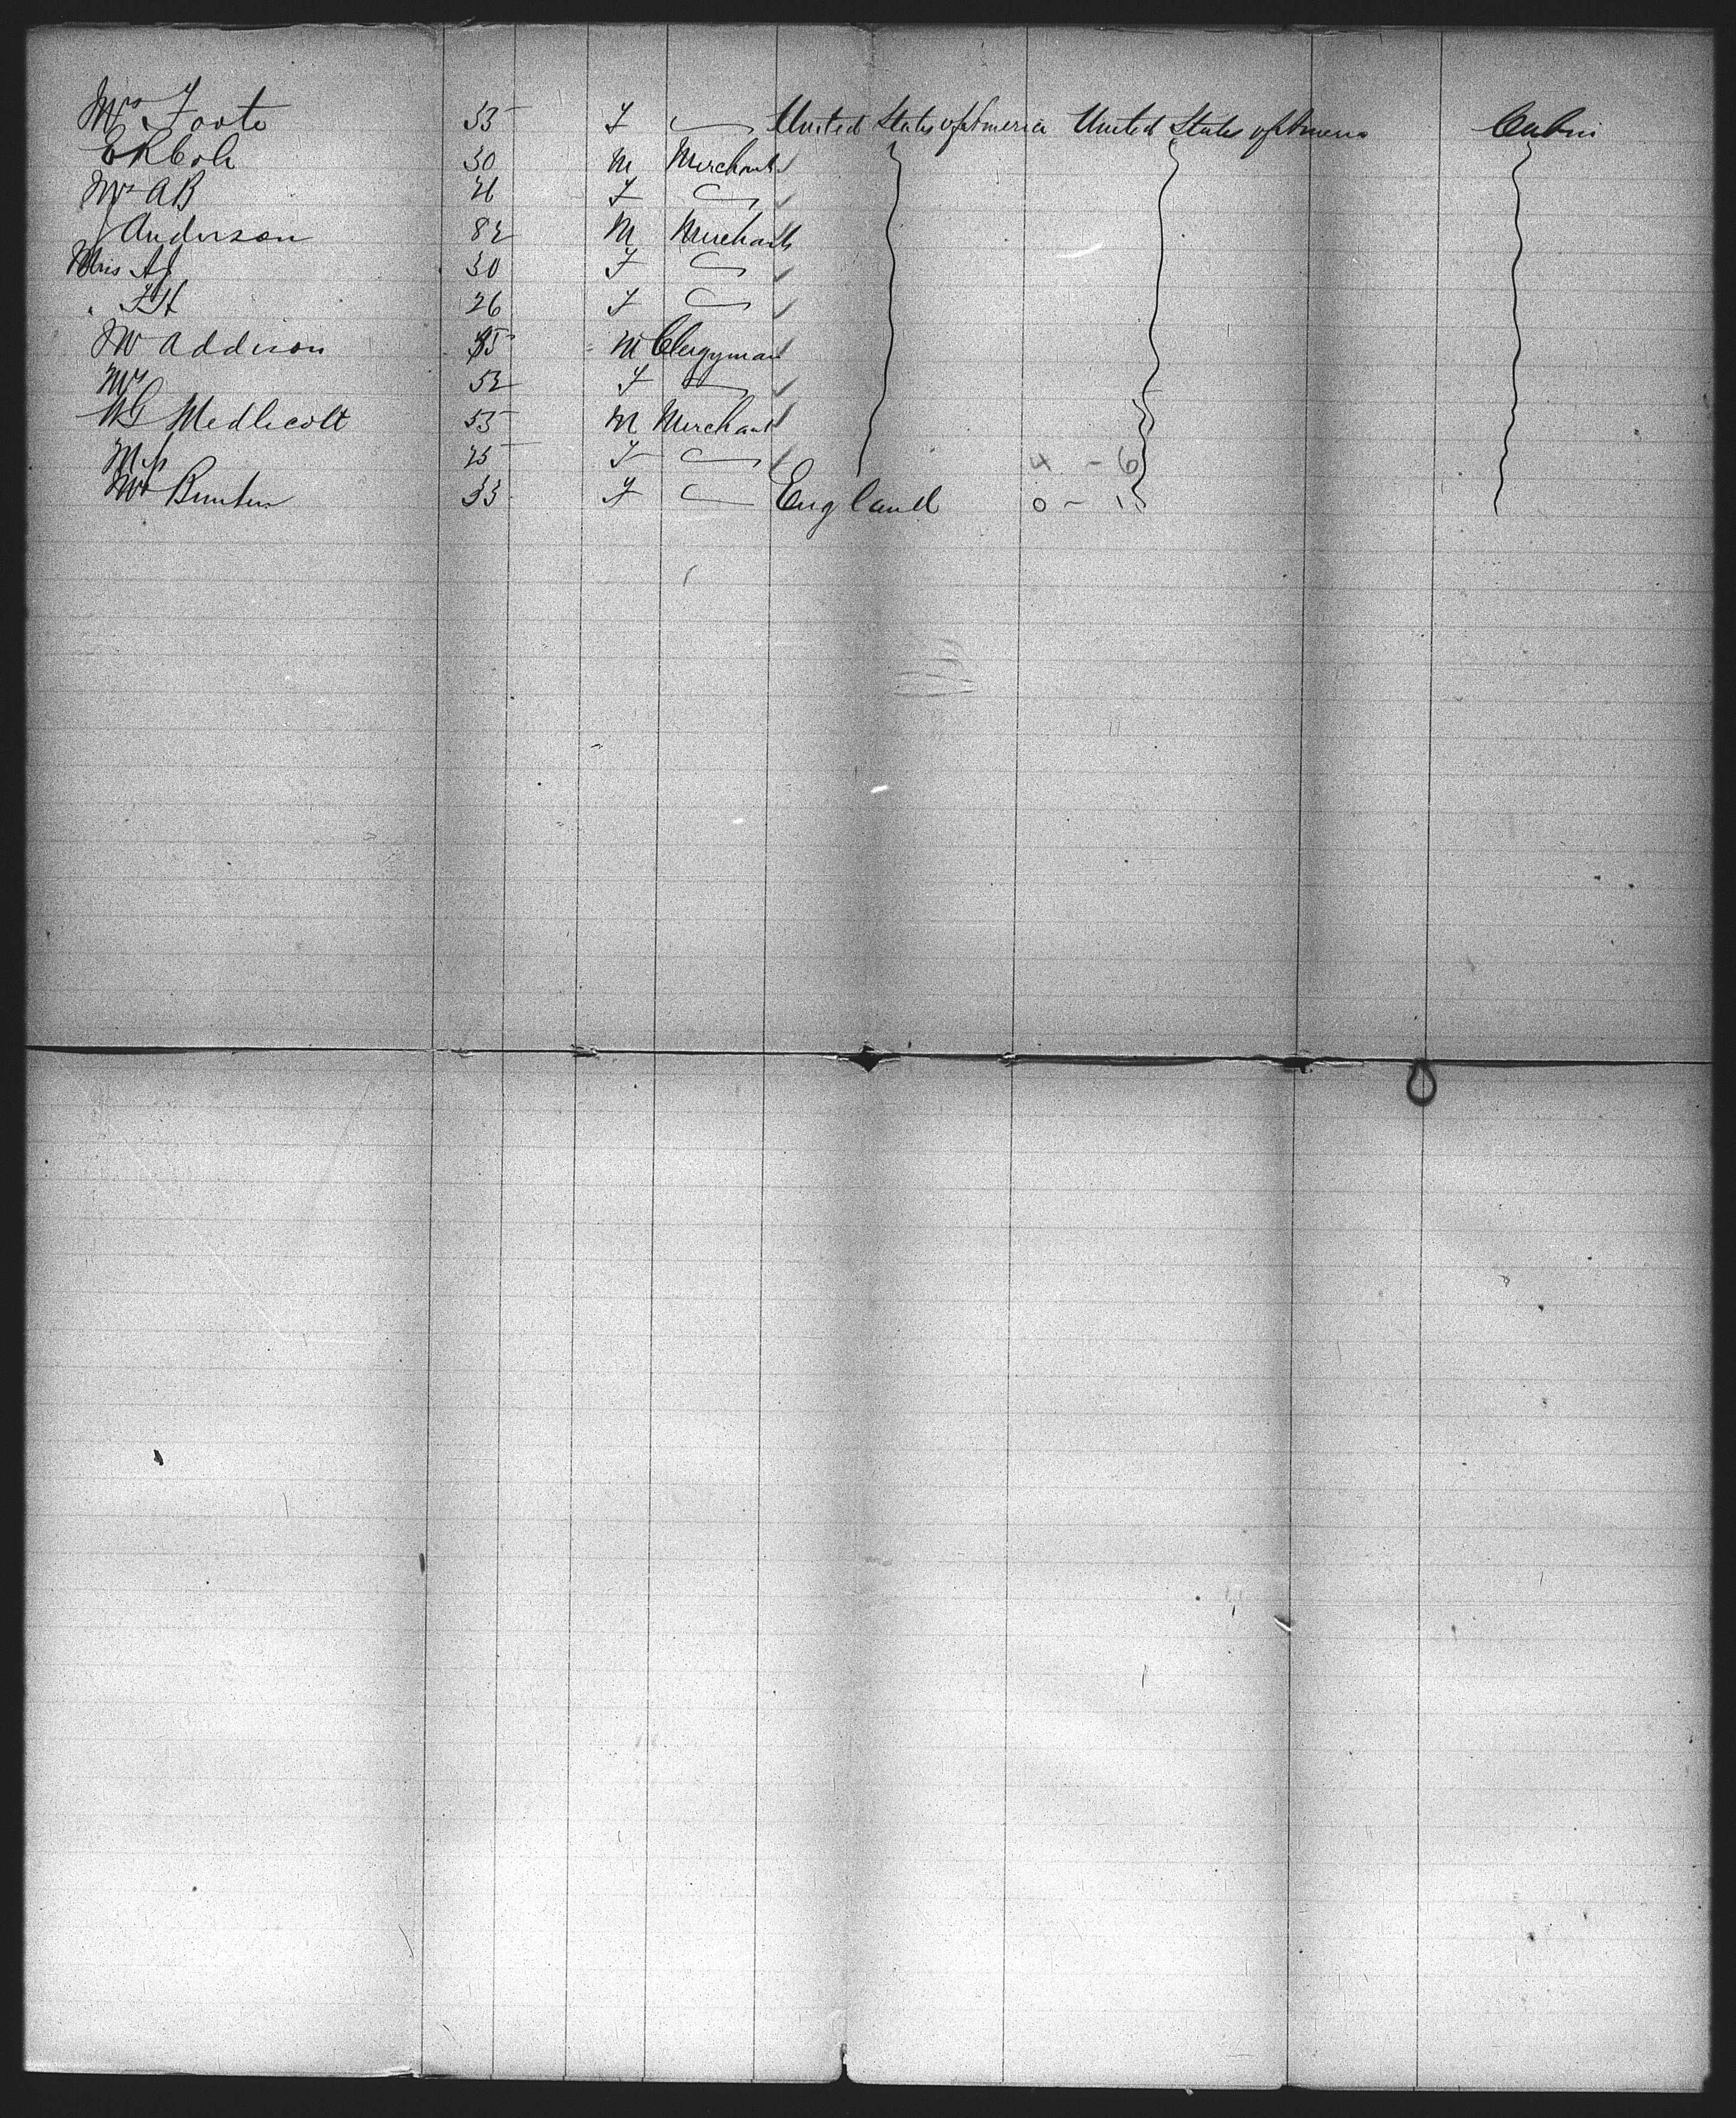 Mrs Foote 35 F United States of America United States of America Cabin
E R Cole 30 M Merchant
Mrs A B 26 F
J Anderson 82 M Merchant
Miss A J 30 F
" F H 26 F
W Addison 55 M Clergyman
Mrs 52 F
W G Medlicott 55 M Merchant
Mrs 45 F 4 - 6
Mrs 33 F England 0 - 1